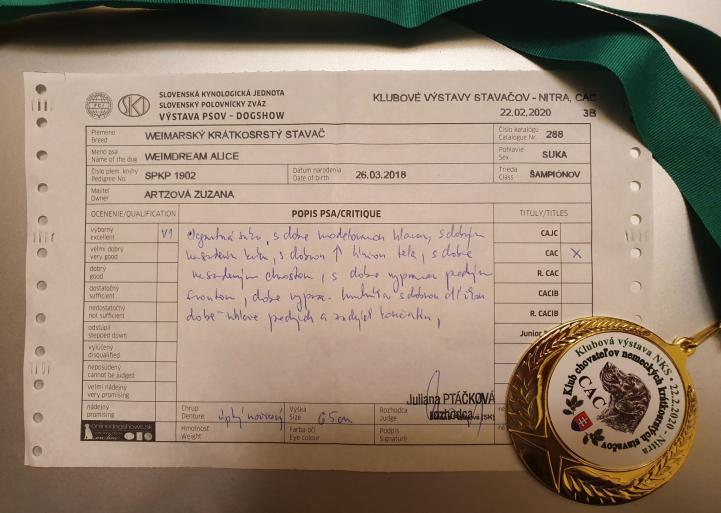 FCI
SKJ
SLOVENSKÁ KYNOLOGICKÁ JEDNOTA
SLOVENSKÝ POĽOVNÍCKY ZVÄZ
VÝSTAVA PSOV - DOGSHOW
KLUBOVÉ VÝSTAVY STAVAČOV - NITRA, CAC
22.02.2020 3B
Plemeno
Breed
WEIMARSKÝ KRÁTKOSRSTÝ STAVAČ
Číslo katalógu
Catalogue Nr.
288
Meno psa
Name of the dog
WEIMDREAM ALICE
Pohlavie
Sex
SUKA
Číslo plem. knihy
Pedigree No.
SPKP 1902
Dátum narodenia
Date of birth
26.03.2018
Trieda
Class
ŠAMPIÓNOV
Majiteľ
Owner
ARTZOVÁ ZUZANA
OCENENIE/QUALIFICATION
POPIS PSA/CRITIQUE
TITULY/TITLES
výborný
excellent
V1
veľmi dobrý
very good
dobrý
good
dostatočný
sufficient
nedostatočný
not sufficient
odstúpil
stepped down
vylúčený
disqualified
neposúdený
cannot be judged
veľmi nádejný
very promising
nádejný
promising
elegantná suka, s dobre modelovanou hlavou, s dobrým
s dobrou hĺbkou tela, s dobre
nasadeným chvostom, s dobre
dobre s dobrou
dobré predných a zadných končatín,
CAJC
CAC X
R. CAC
CACIB
R. CACIB
Junior
Juliana PTÁČKOVÁ
rozhodca (SK)
Chrup
Denture
Výška
Size
65cm
Rozhodca
Judge
Hmotnosť
Weight
Farba očí
Eye colour
Podpis
Signature
onlinedogshows.sk
Klubová výstava NKS • 22.2.2020 • Nitra
Klub chovateľov nemeckých krátkosrstých stavačov
CAC